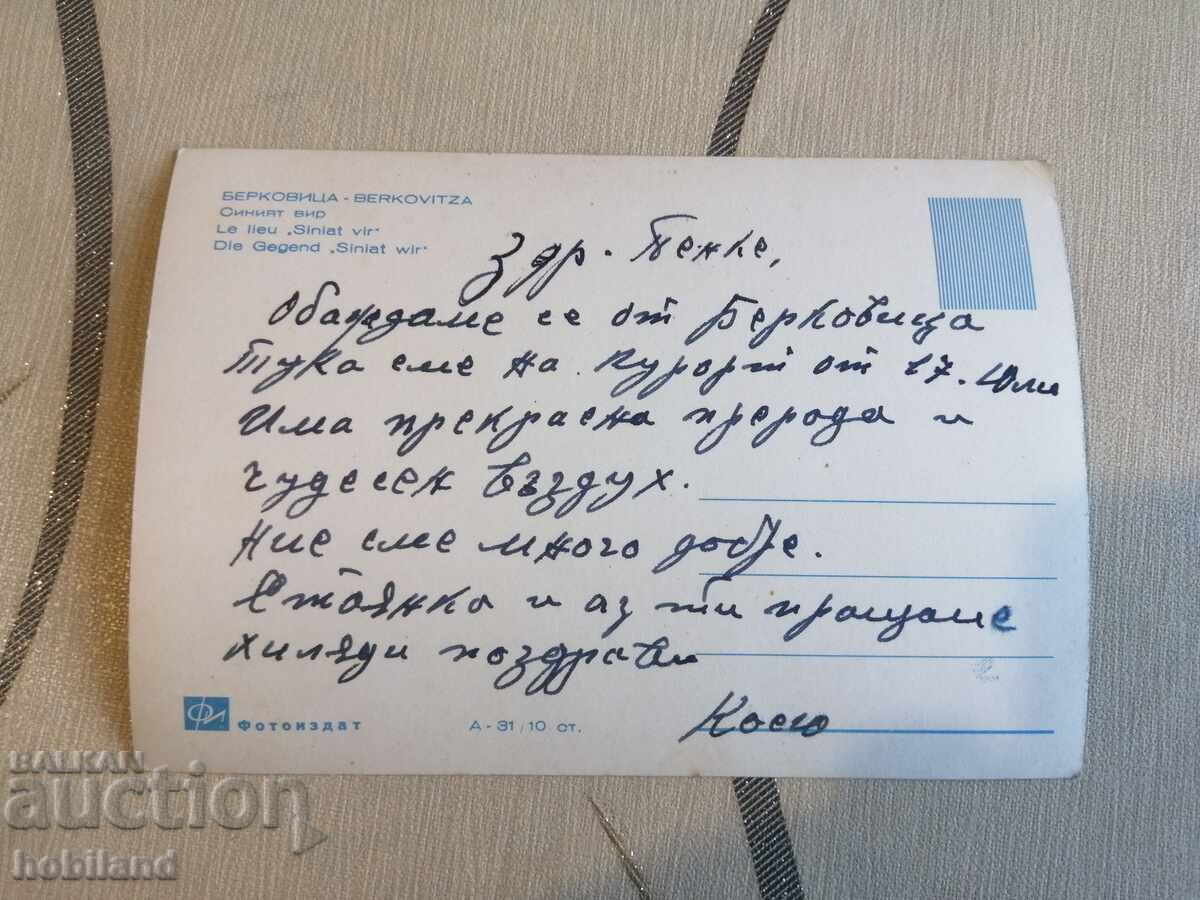 БЕРКОВИЦА - BERKOVITZA
Синият вир
Le lieu „Siniat vir“
Die Gegend „Siniat wir“
Здр. Пенке,
Обаждаме се от Берковица
Тука сме на курорт от 17. Юли
Има прекрасна прерода и
чудесен въздух.
Ние сме много добре.
Стоянка и аз ти пращаме
хиляди поздрави
Фотоиздат
А - 31 / 10 ст.
BALKAN
auction
hobiland